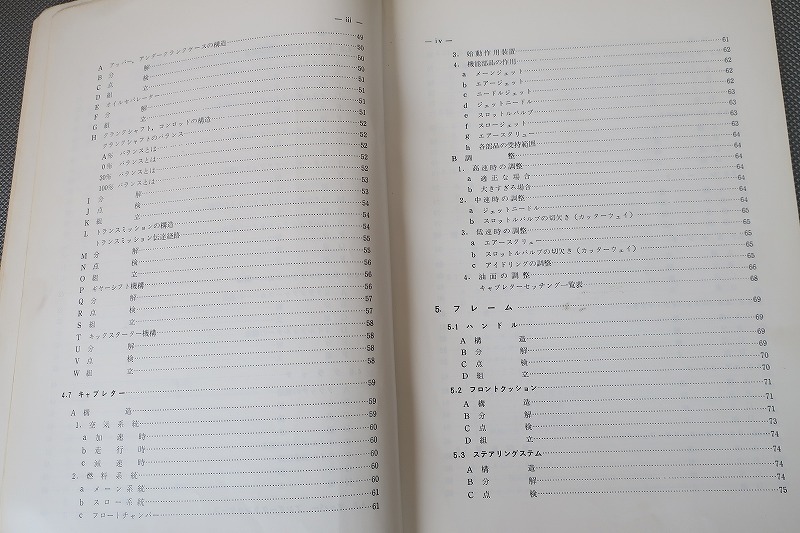 — iii —
A アッパー、アンダークランクケースの構造 49
B 分 解 50
C 点 検 50
D 組 立 50
E オイルセパレーター 51
F 分 解 51
G 組 立 51
H クランクシャフト、コンロッドの構造 51
クランクシャフトのバランス 52
A% バランスとは 52
0% バランスとは 52
50% バランスとは 52
100% バランスとは 52
I 分 解 53
J 点 検 53
K 組 立 54
L トランスミッションの構造 54
トランスミッション伝達経路 54
M 分 解 55
N 点 検 55
O 組 立 56
P ギヤーシフト機構 56
Q 分 解 56
R 点 検 57
S 組 立 57
T キックスターター機構 58
U 分 解 58
V 点 検 58
W 組 立 58
4.7 キャブレター 59
A 構 造 59
1. 空気系統 59
a 加速時 60
b 走行時 60
c 減速時 60
2. 燃料系統 60
a メーン系統 60
b スロー系統 61
c フロートチャンバー 61
— iv —
3. 始動作用装置 61
4. 機能部品の作用 62
a メーンジェット 62
b エアージェット 62
c ニードルジェット 62
d ジェットニードル 63
e スロットルバルブ 63
f スロージェット 63
g エアースクリュー 63
h 各部品の受持範囲 64
B 調 整 64
1. 高速時の調整 64
a 適正な場合 64
b 大きすぎる場合 64
2. 中速時の調整 64
a ジェットニードル 64
b スロットルバルブの切欠き(カッターウェイ) 65
3. 低速時の調整 65
a エアースクリュー 65
b スロットルバルブの切欠き(カッターウェイ) 65
c アイドリングの調整 65
4. 油面の調整 66
キャブレターセッチング一覧表 68
5. フレーム 69
5.1 ハンドル 69
A 構 造 69
B 分 解 69
C 点 検 70
D 組 立 70
5.2 フロントクッション 71
A 構 造 71
B 分 解 71
C 点 検 73
D 組 立 74
5.3 ステアリングステム 74
A 構 造 74
B 分 解 74
C 点 検 75